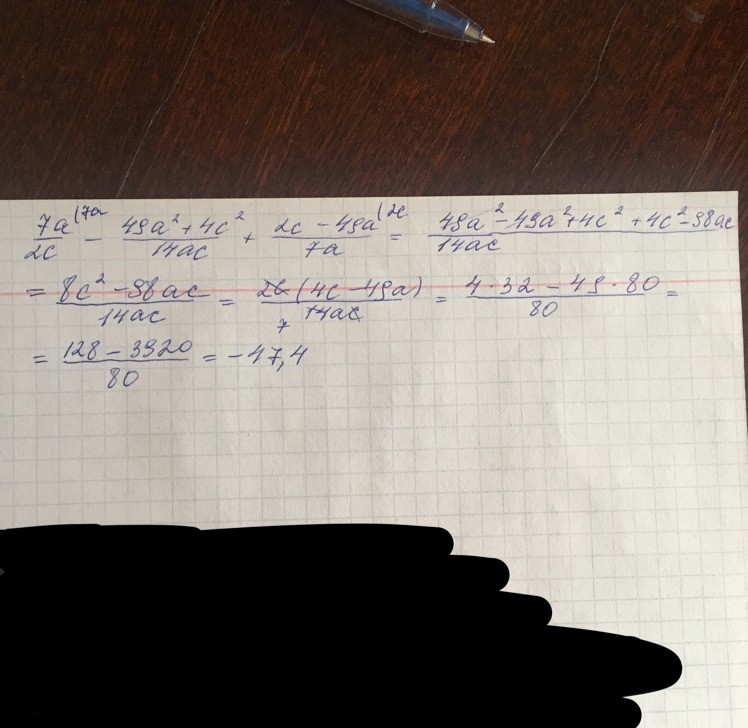 7a/2c (7a − 49a² + 4c²/14ac + 2c − 49a/7a (2c = 49a² − 49a² + 4c² + 4c² − 98ac/14ac
= 8c² − 98ac/14ac = 2c(4c − 49a)/14ac 7 = 4·32 − 49·80/80 =
= 128 − 3920/80 = −47,4